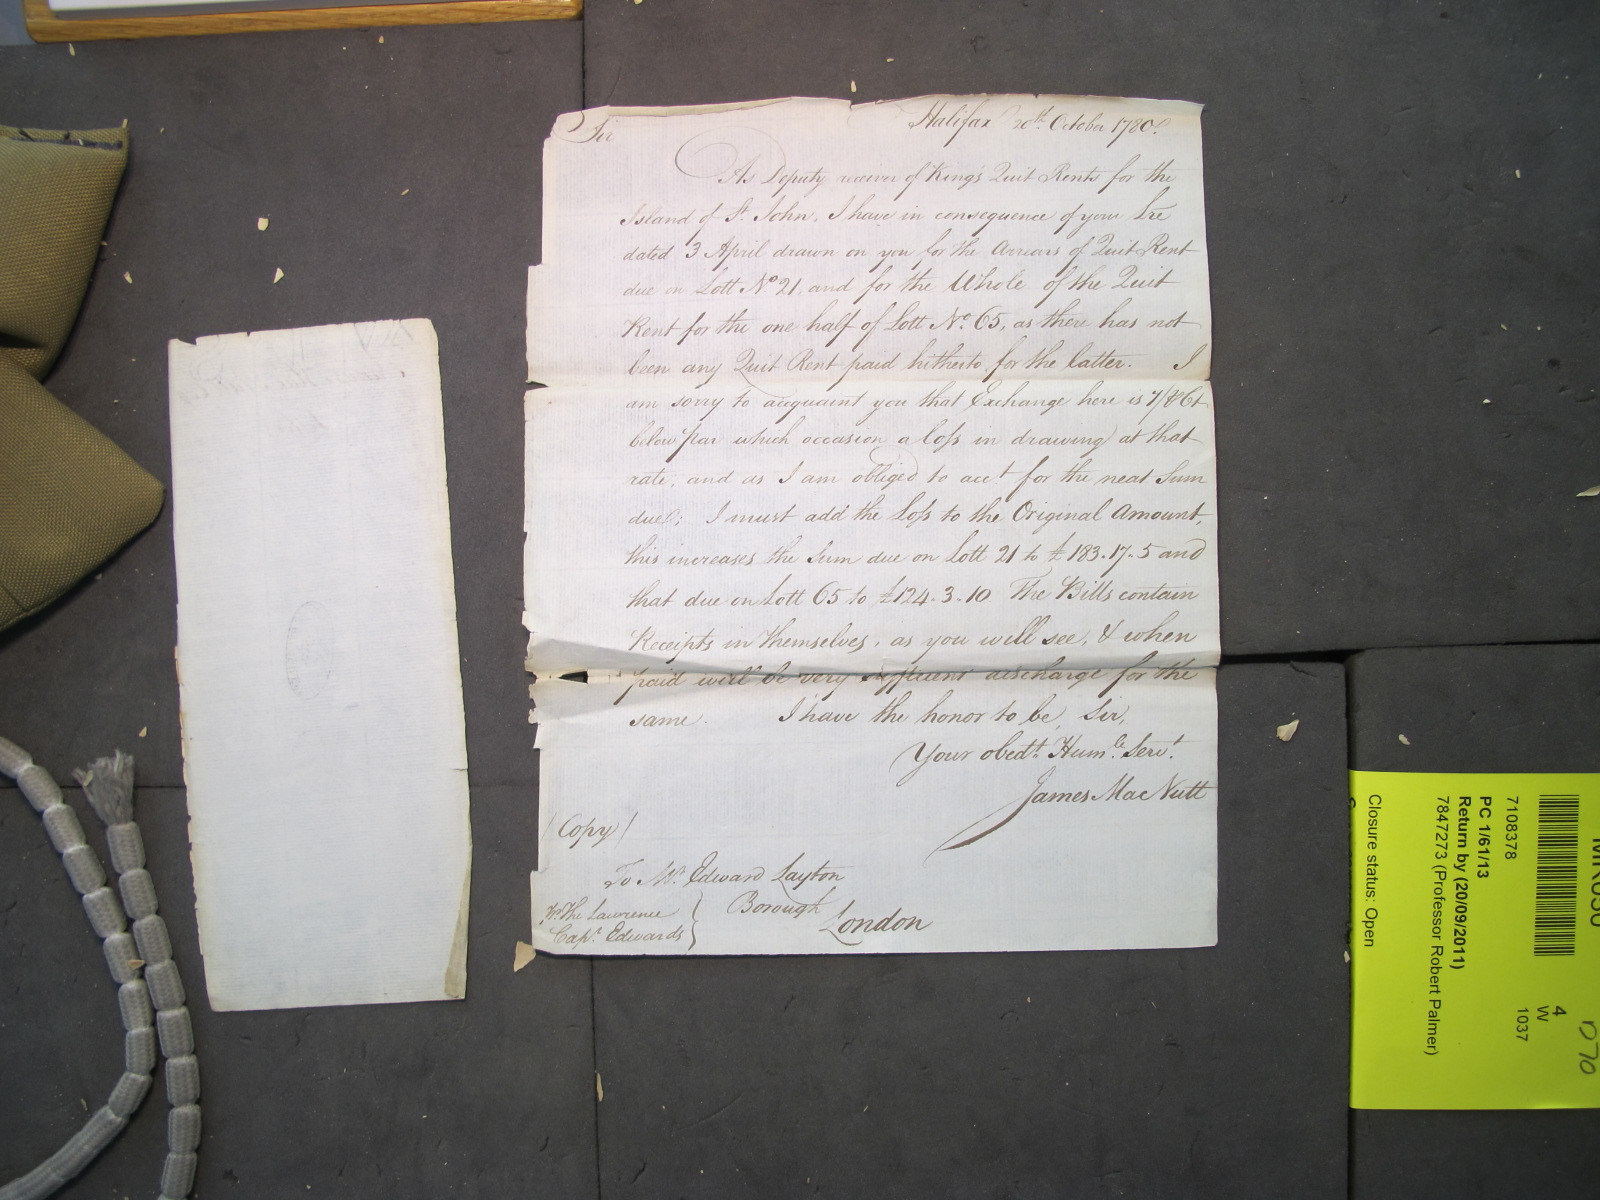 Halifax 20th. October 1780.
Sir
As Deputy receiver of King's Quit Rents for the
Island of St. John, I have in consequence of your Lre
dated 3 April drawn on you for the Arrears of Quit Rent
due on Lott No. 21, and for the Whole of the Quit
Rent for the one half of Lott No. 65, as there has not
been any Quit Rent paid hitherto for the latter. I
am sorry to acquaint you that Exchange here is
below par which occasion a loss in drawing at that
rate, and as I am obliged to acct for the neat Sum
due; I must add the Loss to the Original Amount,
this increases the Sum due on Lott 21 to £183.17.5 and
that due on Lott 65 to £124.3.10 The Bills contain
Receipts in themselves, as you will see, & when
paid will be very sufficient discharge for the
same. I have the honor to be, Sir,
Your obedt. Humle. Servt.
James MacNutt
(Copy)
To Mr. Edward Layton
Borough
London
The Lawrence
Capt. Edwards
7108378
PC 1/61/13
Return by (20/09/2011)
7847273 (Professor Robert Palmer)
Closure status: Open
4
W
1037
D70